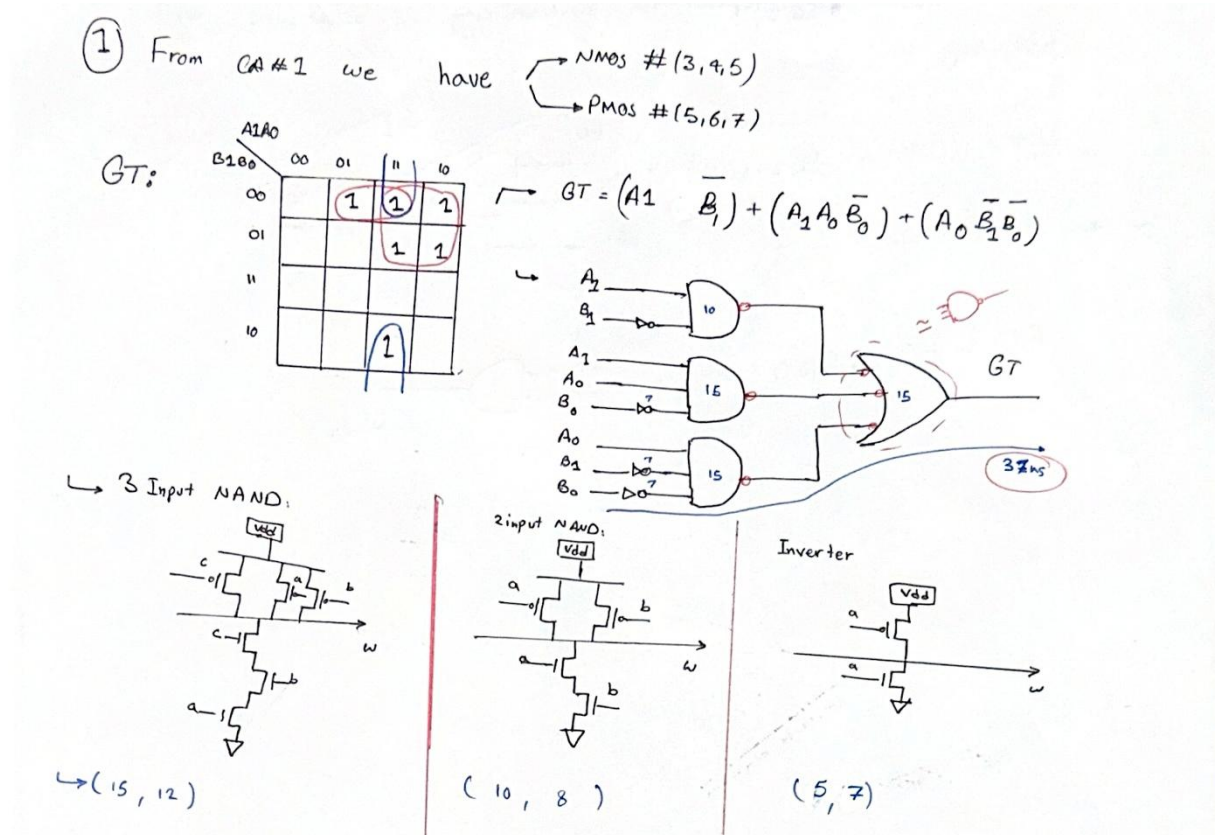 1 From CA#1 we have
NMOS #(3,4,5)
PMOS #(5,6,7)
GT:
A1A0
B1B0 00 01 11 10
00 1 1 1
01 1 1
11
10 1
GT = (A1 B̅₁) + (A₁A₀B̅₀) + (A₀B̅₁B̅₀)
A₁
B₁
10
A₁
A₀
B₀ 7
15
A₀
B₁ 7
B₀ 7
15
≈
15
GT
37ns
3 Input NAND:
Vdd
c a b
w
c
b
a
(15, 12)
2input NAND:
Vdd
a b
w
a
b
(10, 8)
Inverter
Vdd
a
a
w
(5,7)